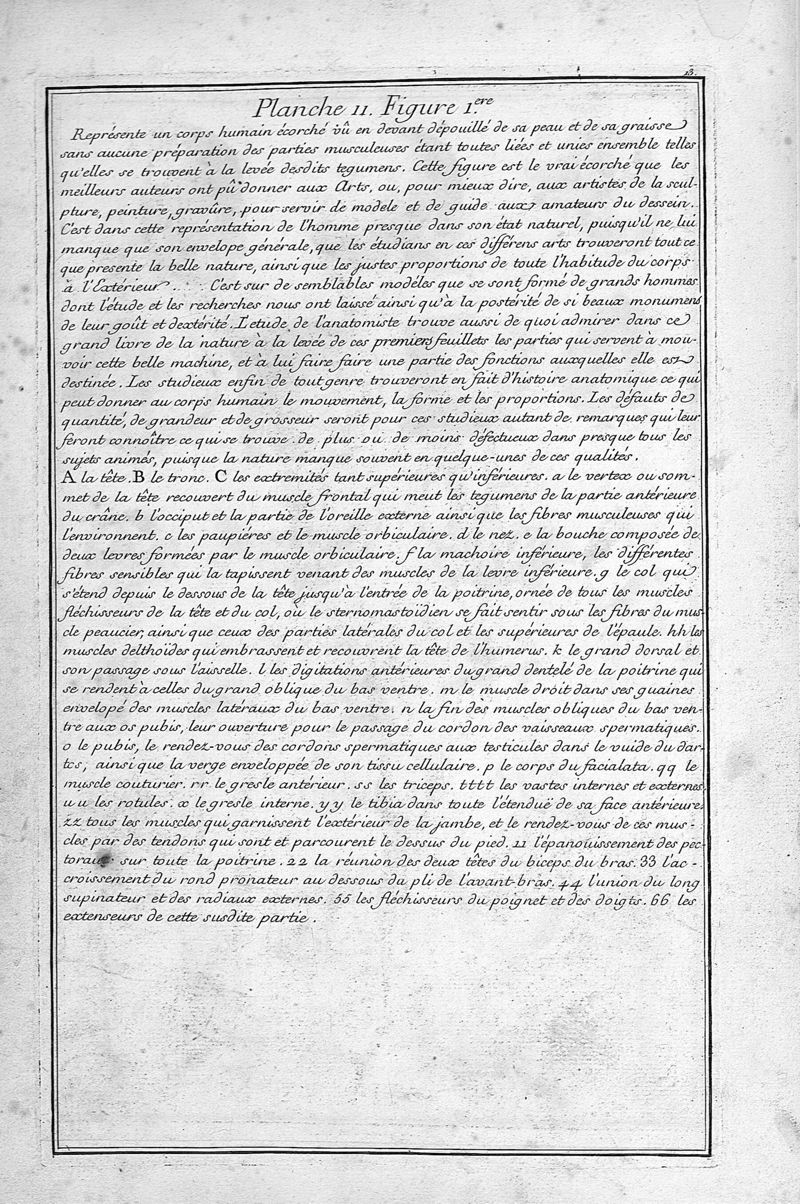 13.
Planche 11. Figure 1.ere
Représente un corps humain écorché vû en devant dépouillé de sa peau et de sa graisse
sans aucune préparation des parties musculeuses étant toutes liées et unies ensemble telles
qu'elles se trouvent à la levée desdits tegumens. Cette figure est le vrai écorché que les
meilleurs auteurs ont pû donner aux Arts, ou, pour mieux dire, aux artistes de la scul-
pture, peinture, gravûre, pour servir de modele et de guide aux amateurs du dessein.
C'est dans cette représentation de l'homme presque dans son état naturel, puisqu'il ne lui
manque que son envelope générale, que les étudians en ces différens arts trouveront tout ce
que presente la belle nature, ainsi que les justes proportions de toute l'habitude du corps
à l'Extérieur . . . . C'est sur de semblables modèles que se sont formé de grands hommes
dont l'étude et les recherches nous ont laissé ainsi qu'à la postérité de si beaux monumens
de leur goût et dextérité. L'etude de l'anatomiste trouve aussi de quoi admirer dans ce
grand livre de la nature à la levée de ces premiers feuillets les parties qui servent à mou-
voir cette belle machine, et à lui faire faire une partie des fonctions auxquelles elle est
destinée. Les studieux enfin de tout genre trouveront en fait d'histoire anatomique ce qui
peut donner au corps humain le mouvement, la forme et les proportions. Les défauts de
quantité, de grandeur et de grosseur seront pour ces studieux autant de remarques qui leur
feront connoître ce qui se trouve de plus ou de moins défectueux dans presque tous les
sujets animés, puisque la nature manque souvent en quelque-unes de ces qualités.
A la tête. B le tronc. C les extremités tant supérieures qu'inférieures. a le vertex ou som-
met de la tête recouvert du muscle frontal qui meut les tegumens de la partie antérieure
du crâne. b l'occiput et la partie de l'oreille externe ainsi que les fibres musculeuses qui
l'environnent. c les paupières et le muscle orbiculaire. d le nez. e la bouche composée de
deux levres formées par le muscle orbiculaire. f la machoire inférieure, les différentes
fibres sensibles qui la tapissent venant des muscles de la levre inférieure. g le col qui
s'étend depuis le dessous de la tête jusqu'à l'entrée de la poitrine, ornée de tous les muscles
fléchisseurs de la tête et du col, où le sternomastoïdien se fait sentir sous les fibres du mus-
cle peaucier, ainsi que ceux des parties latérales du col et les supérieures de l'épaule. hh les
muscles delthoïdes qui embrassent et recouvrent la tête de l'humerus. k le grand dorsal et
son passage sous l'aisselle. l les digitations antérieures du grand dentelé de la poitrine qui
se rendent à celles du grand oblique du bas ventre. m le muscle droit dans ses guaines
envelopé des muscles latéraux du bas ventre. n la fin des muscles obliques du bas ven-
tre aux os pubis, leur ouverture pour le passage du cordon des vaisseaux spermatiques.
o le pubis, le rendez-vous des cordons spermatiques aux testicules dans le vuide du dar-
tos, ainsi que la verge enveloppée de son tissu cellulaire. p le corps du facialata. qq le
muscle couturier. rr le gresle antérieur. ss les triceps. tttt les vastes internes et externes
uu les rotules. x le gresle interne. yy le tibia dans toute l'étenduë de sa face antérieure.
zz tous les muscles qui garnissent l'extérieur de la jambe, et le rendez-vous de ces mus-
cles par des tendons qui sont et parcourent le dessus du pied. 11 l'épanouissement des pec-
toraux sur toute la poitrine. 22 la réunion des deux têtes du biceps du bras. 33 l'ac-
croissement du rond pronateur au dessous du pli de l'avant-bras. 44 l'union du long
supinateur et des radiaux externes. 55 les fléchisseurs du poignet et des doigts. 66 les
extenseurs de cette susdite partie.